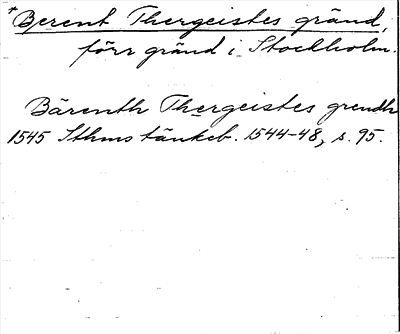 *Berent Thergeistes gränd,
förr gränd i Stockholm.
Bärenth Thergeistes grendh
1545 Sthms tänkeb. 1544-48, s. 95.